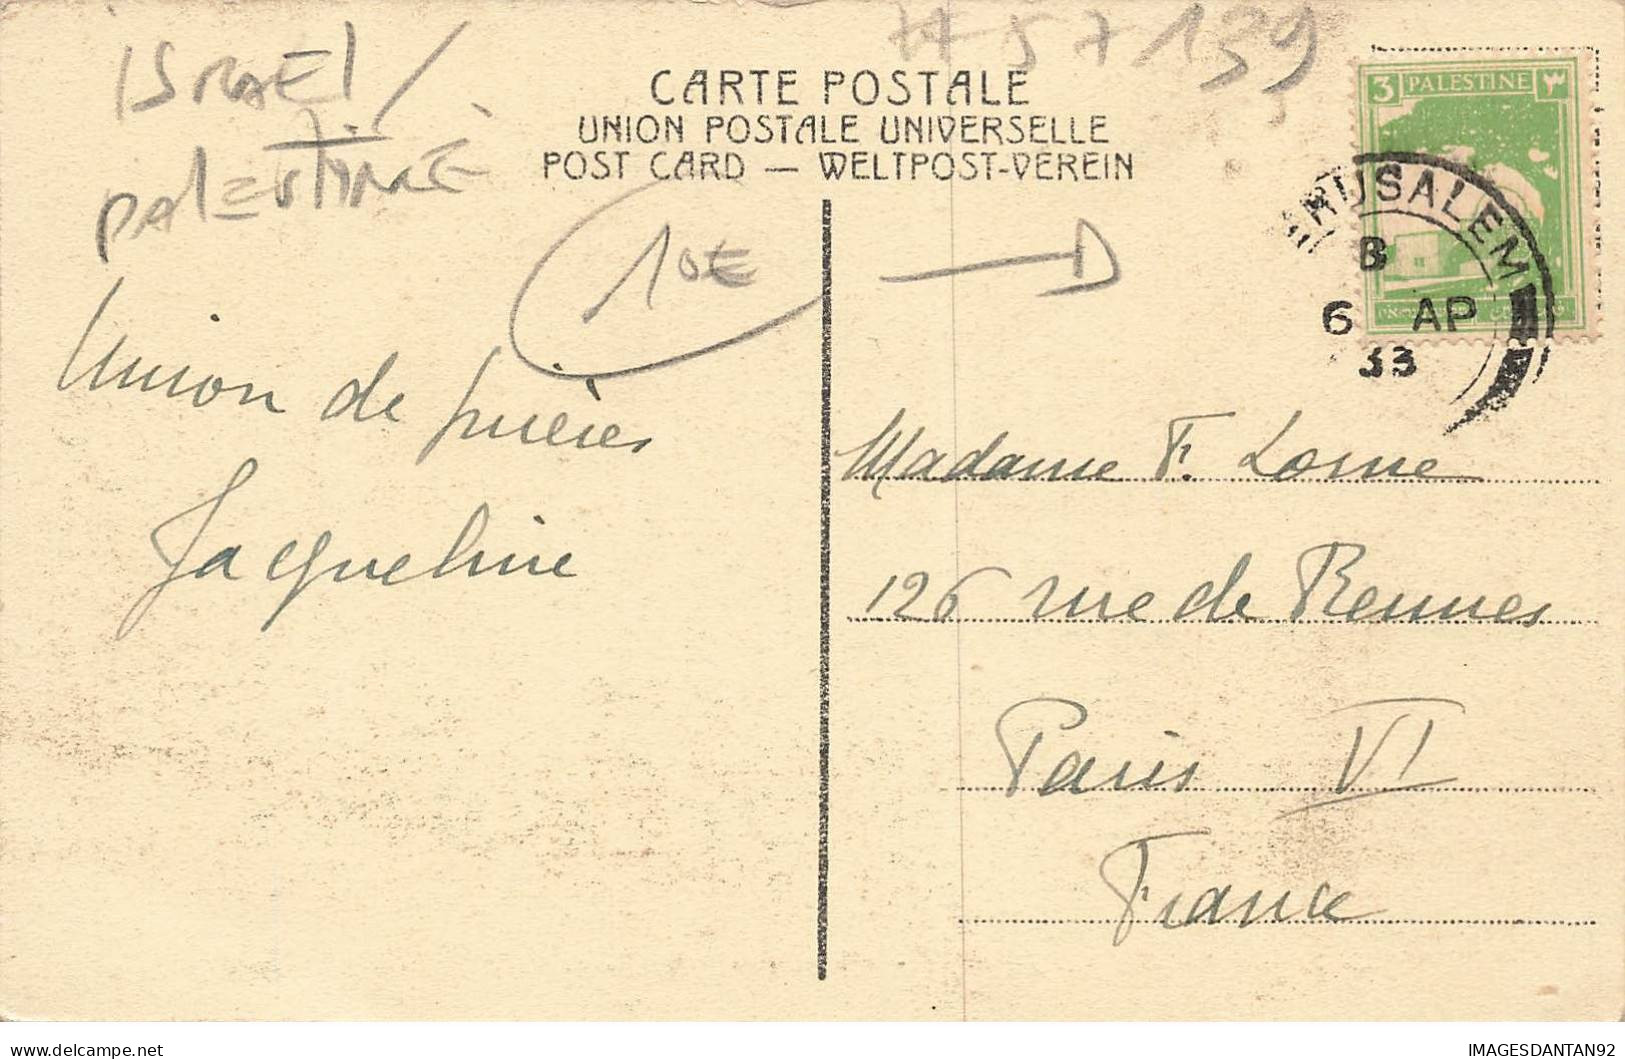 ISRAEL/
PALESTINE
7757139
CARTE POSTALE
UNION POSTALE UNIVERSELLE
POST CARD — WELTPOST-VEREIN
3 PALESTINE ٣
ERUSALEM
B
6 AP
33
10€
Union de prières
Jacqueline
Madame F. Lorne
126 rue de Rennes
Paris VI
France
delcampe.net
IMAGESDANTAN92